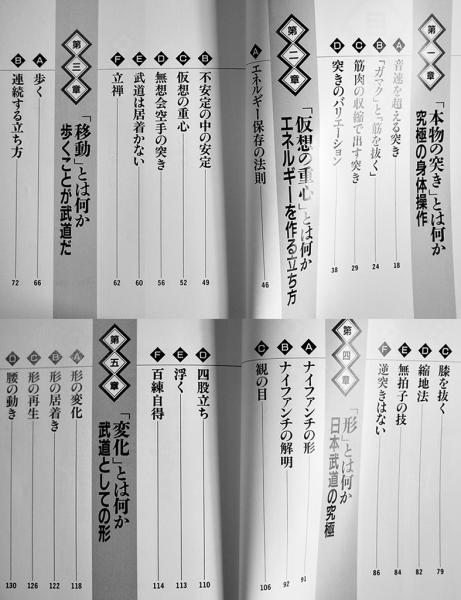 第一章
「本物の突き」とは何か
究極の身体操作
A 音速を超える突き 18
B 「ガマク」と「筋を抜く」 24
C 筋肉の収縮で出す突き 29
D 突きのバリエーション 38
第二章
「仮想の重心」とは何か
エネルギーを作る立ち方
A エネルギー保存の法則 46
B 不安定の中の安定 49
C 仮想の重心 52
D 無想会空手の突き 56
E 武道は居着かない 60
F 立禅 62
第三章
「移動」とは何か
歩くことが武道だ
A 歩く 66
B 連続する立ち方 72
C 膝を抜く 79
D 縮地法 82
E 無拍子の技 84
F 逆突きはない 86
第四章
「形」とは何か
日本武道の究極
A ナイファンチの形 91
B ナイファンチの解明 92
C 観の目 106
D 四股立ち 110
E 浮く 113
F 百練自得 114
第五章
「変化」とは何か
武道としての形
A 形の変化 118
B 形の居着き 122
C 形の再生 126
D 腰の動き 130